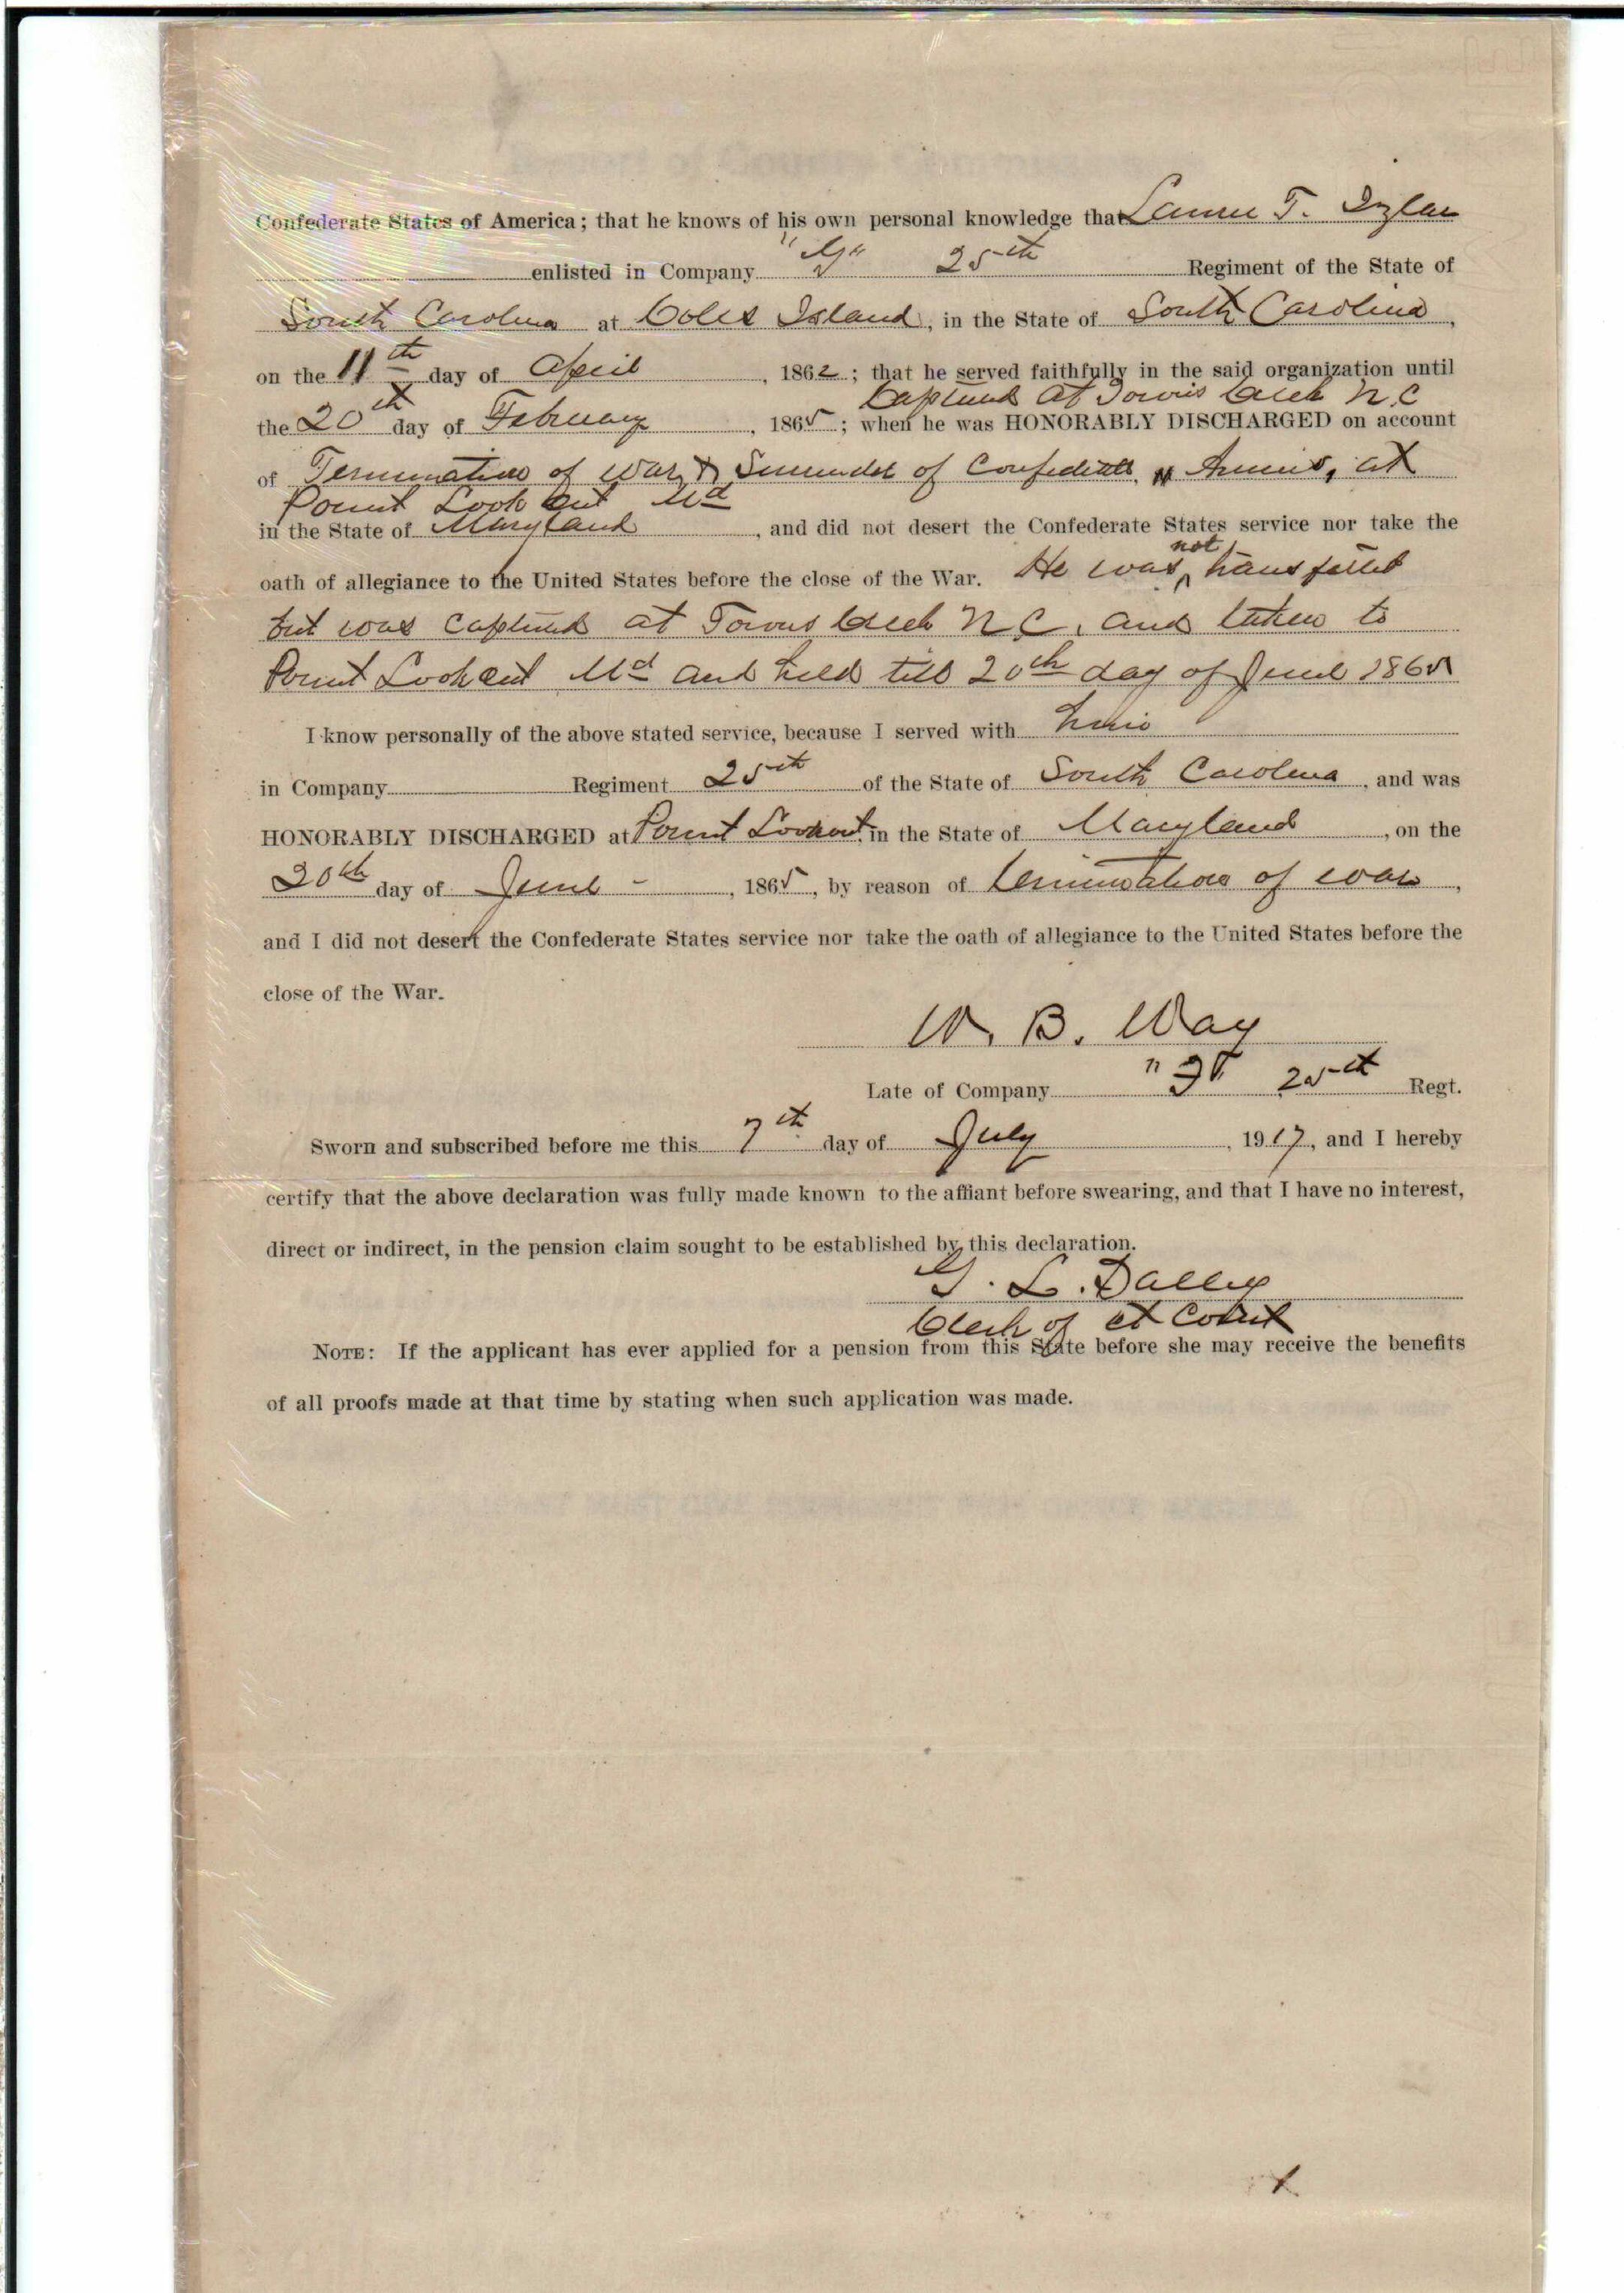 Confederate States of America; that he knows of his own personal knowledge that T. Izlar
enlisted in Company "G" 25th Regiment of the State of
South Carolina at Coles Island, in the State of South Carolina,
on the 11th day of April, 1862; that he served faithfully in the said organization until
Captured at Towns Creek N.C
the 20th day of February, 1865; when he was HONORABLY DISCHARGED on account
of Termination of war & Surrender of Confederate Armies, at
Point Look out Md
in the State of Maryland, and did not desert the Confederate States service nor take the
oath of allegiance to the United States before the close of the War. He was not transferred
but was captured at Towns Creek N.C. and taken to
Point Lookout Md and held till 20th day of June 1865
I know personally of the above stated service, because I served with him
in Company Regiment 25th of the State of South Carolina, and was
HONORABLY DISCHARGED at Point Lookout, in the State of Maryland, on the
20th day of June, 1865, by reason of termination of war,
and I did not desert the Confederate States service nor take the oath of allegiance to the United States before the
close of the War.
W. B. Way
Late of Company 25th Regt.
Sworn and subscribed before me this 7th day of July, 1917, and I hereby
certify that the above declaration was fully made known to the affiant before swearing, and that I have no interest,
direct or indirect, in the pension claim sought to be established by this declaration.
G. L. Salley
Clerk of Ct Court
NOTE: If the applicant has ever applied for a pension from this State before she may receive the benefits
of all proofs made at that time by stating when such application was made.